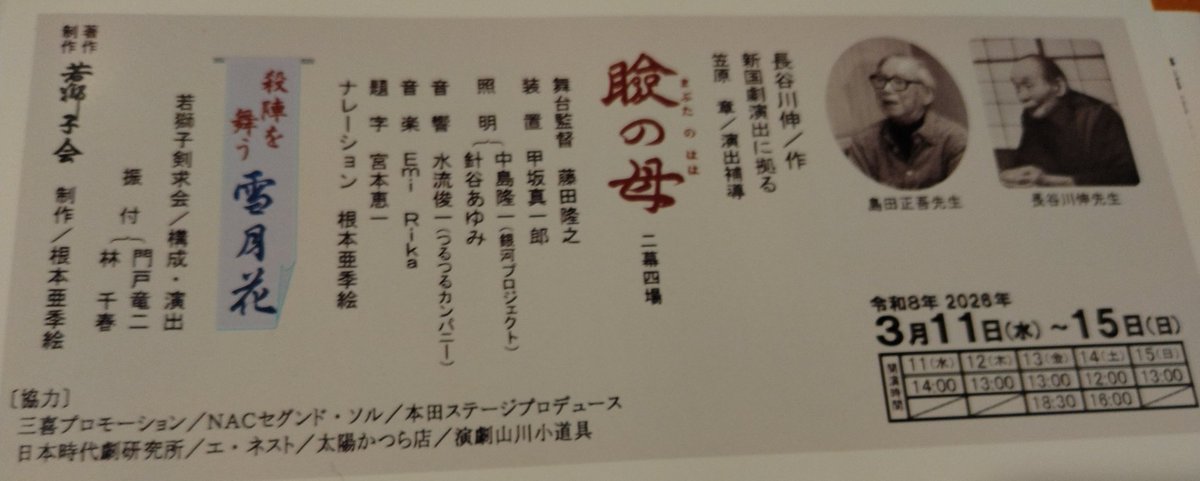 長谷川伸先生
島田正吾先生
長谷川伸／作
新国劇演出に拠る
笠原 章／演出補導
瞼の母 二幕四場
まぶたのはは
舞台監督 藤田隆之
装置 甲坂真一郎
照明 中島隆一（銀河プロジェクト）
針谷あゆみ
音響 水流俊一（つるつるカンパニー）
音楽 Emi Rika
題字 宮本恵一
ナレーション 根本亜季絵
殺陣を舞う 雪月花
若獅子剣求会／構成・演出
振付 門戸竜二
林 千春
著作
制作 若獅子会 制作／根本亜季絵
令和8年 2026年
3月11日（水）～15日（日）
開演時間
11（水） 12（木） 13（金） 14（土） 15（日）
14:00 13:00 13:00 12:00 13:00
18:30 16:00
［協力］
三喜プロモーション／NACセグンド・ソル／本田ステージプロデュース
日本時代劇研究所／エ・ネスト／太陽かつら店／演劇山川小道具